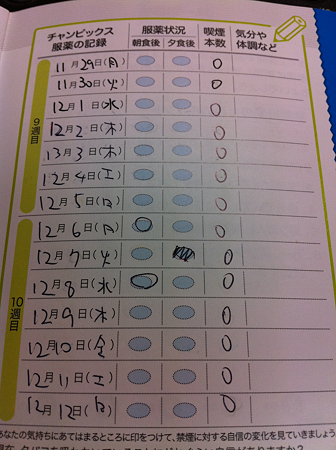 チャンピックス
服薬の記録
服薬状況
朝食後 夕食後
喫煙
本数
気分や
体調など
9週目
11月29日(月) 0
11月30日(火) 0
12月1日(水) 0
12月2日(木) 0
13月3日(木) 0
12月4日(土) 0
12月5日(日) 0
10週目
12月6日(月) 0
12月7日(火) 0
12月8日(水) 0
12月9日(木) 0
12月10日(金) 0
12月11日(土) 0
12月12日(日) 0
あなたの気持ちにあてはまるところに印をつけて、禁煙に対する自信の変化を見ていきましょう